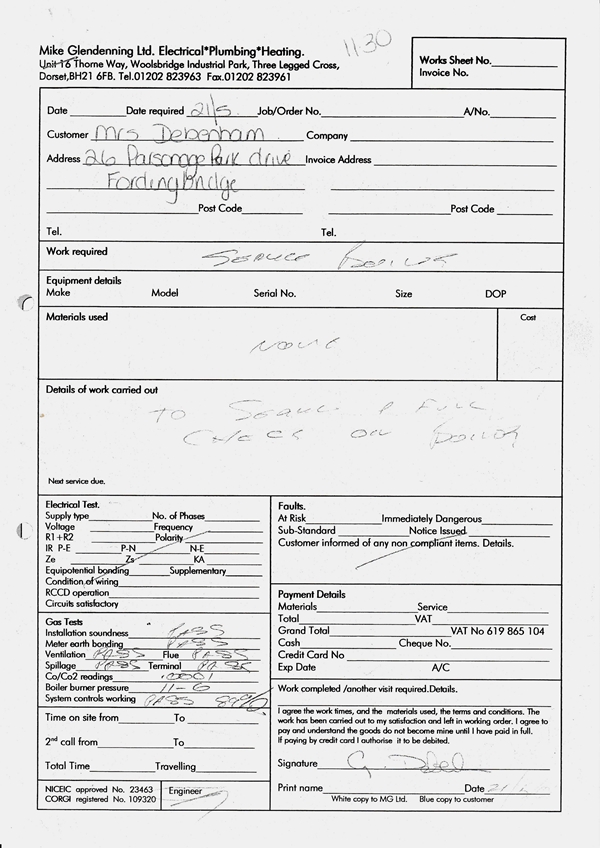 Mike Glendenning Ltd. Electrical*Plumbing*Heating.
11-30
Unit 16 Thorne Way, Woolsbridge Industrial Park, Three Legged Cross,
Dorset,BH21 6FB. Tel.01202 823963 Fax.01202 823961
Works Sheet No.
Invoice No.
Date Date required 21/5 Job/Order No. A/No.
Customer Mrs Debenham Company
Address 26 Parsonage Park drive Invoice Address
Fordingbridge
Post Code Post Code
Tel. Tel.
Work required Service Boiler
Equipment details
Make Model Serial No. Size DOP
Materials used Cost
None
Details of work carried out
TO Service & Full
Check on Boiler
Next service due.
Electrical Test.
Supply type No. of Phases
Voltage Frequency
R1+R2 Polarity
IR P-E P-N N-E
Ze Zs KA
Equipotential bonding Supplementary
Condition of wiring
RCCD operation
Circuits satisfactory
Gas Tests
Installation soundness PASS
Meter earth bonding PASS
Ventilation PASS Flue PASS
Spillage PASS Terminal PASS
Co/Co2 readings .0001
Boiler burner pressure 11-6
System controls working PASS
Time on site from To
2nd call from To
Total Time Travelling
NICEIC approved No. 23463
CORGI registered No. 109320
Engineer
Faults.
At Risk Immediately Dangerous
Sub-Standard Notice Issued
Customer informed of any non compliant items. Details.
Payment Details
Materials Service
Total VAT
Grand Total VAT No 619 865 104
Cash Cheque No.
Credit Card No
Exp Date A/C
Work completed /another visit required.Details.
I agree the work times, and the materials used, the terms and conditions. The
work has been carried out to my satisfaction and left in working order. I agree to
pay and understand the goods do not become mine until I have paid in full.
If paying by credit card I authorise it to be debited.
Signature
Print name Date
White copy to MG Ltd. Blue copy to customer